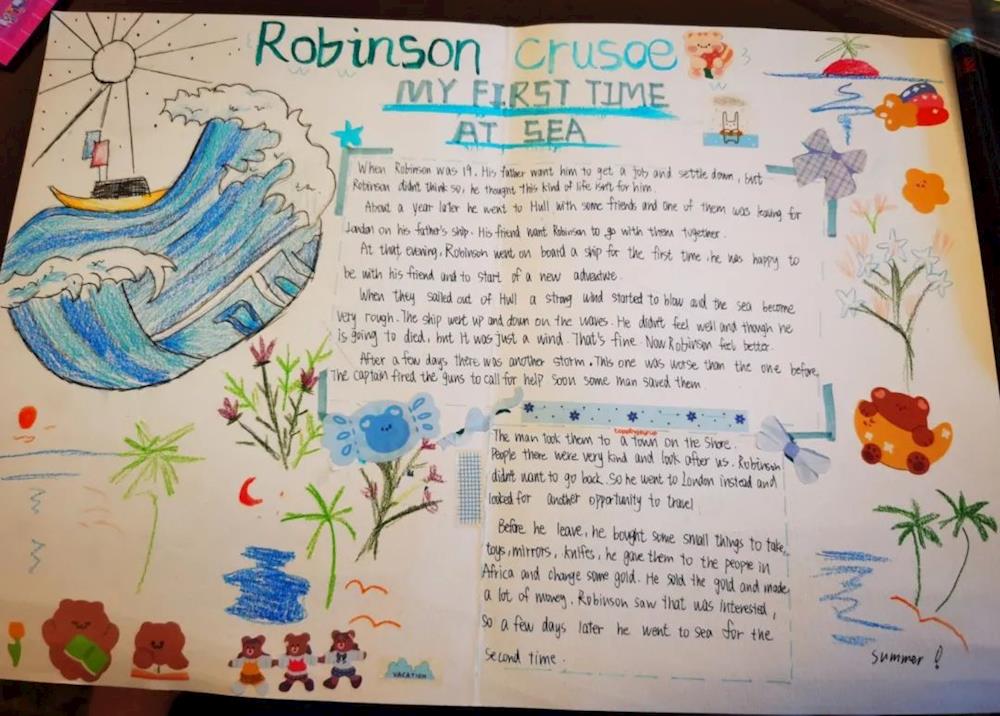 Robinson Crusoe
MY FIRST TIME
AT SEA
When Robinson was 19. His father want him to get a job and settle down, but
Robinson didn't think so, he thought this kind of life isn't for him.
About a year later he went to Hull with some friends and one of them was leaving for
London on his father's ship. His friend want Robinson to go with them together.
At that, evening, Robinson went on board a ship for the first time, he was happy to
be with his friend and to start of a new adventure.
When they sailed out of Hull a strong wind started to blow and the sea become
very rough. The ship went up and down on the waves. He didn't feel well and though he
is going to died, but it was just a wind. That's fine. Now Robinson feel better.
After a few days there was another storm. This one was worse than the one before,
The captain fired the guns to call for help soon some man saved them.
The man took them to a town on the shore.
People there were very kind and look after us. Robinson
didn't want to go back. So he went to London instead and
looked for another opportunity to travel
Before he leave, he bought some small things to take,
toys, mirrors, knifes, he gave them to the people in
Africa and change some gold. He sold the gold and made
a lot of money. Robinson saw that was interested,
so a few days later he went to sea for the
second time.
VACATION
summer!